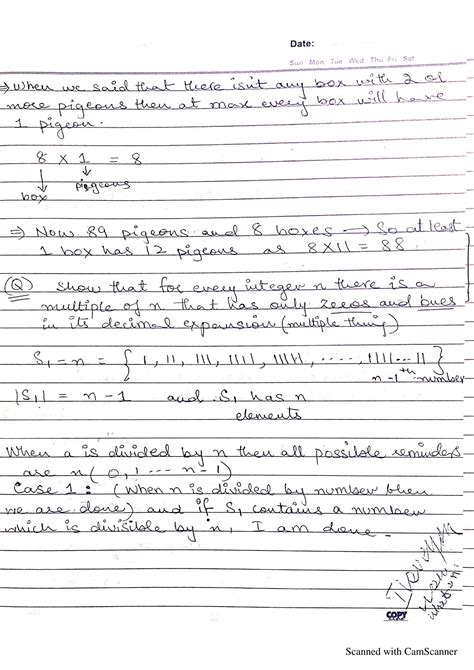 Date:
Sun Mon Tue Wed Thu Fri Sat
⇒ When we said that there isn't any box with 2 or
more pigeons then at max every box will have
1 pigeon.
8 × 1 = 8
↓ ↓
box pigeons
⇒ Now 89 pigeons and 8 boxes → So at least
1 box has 12 pigeons as 8×11 = 88
(Q) Show that for every integer n there is a
multiple of n that has only zeros and ones
in its decimal expansion (multiple thing)
S₁ = n = { 1, 11, 111, 1111, 11111, ..... , 1111...11 }
n-1th number
|S₁| = n - 1 and S₁ has n
elements
When a is divided by n then all possible reminders
are n (0, 1 --- n-1)
Case 1: (When n is divided by number then
we are done) and if S₁ contains a number
which is divisible by n, I am done.
COPY
Scanned with CamScanner